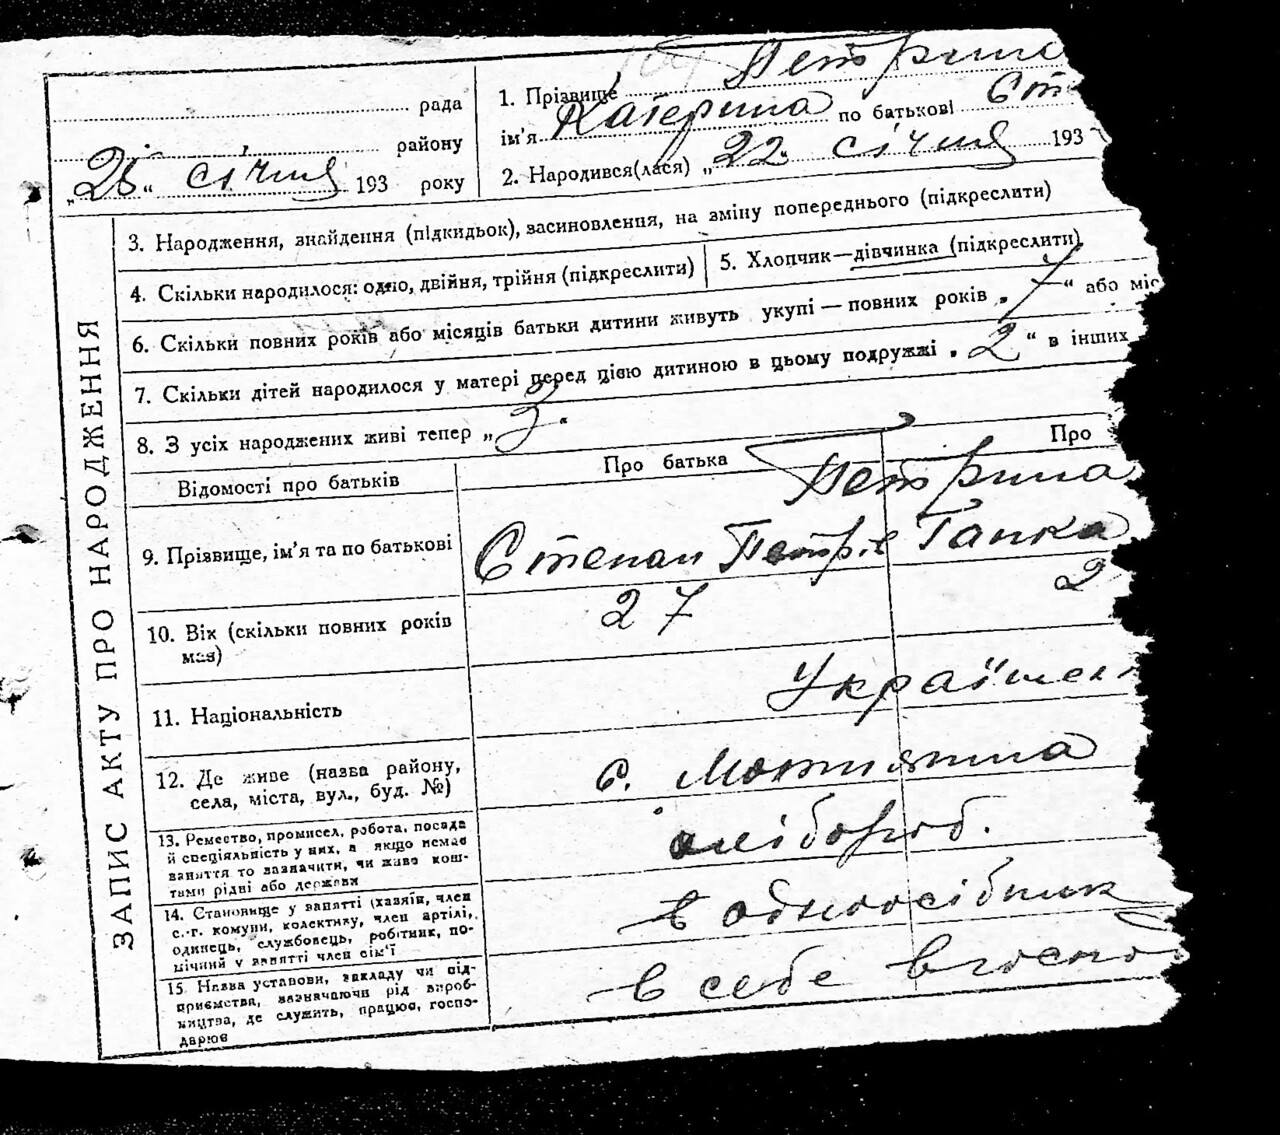 Петрина
рада
1. Прізвище
районy
ім'я Катерина по батькові Ст
„28“ січня 193 року
2. Народився(лася) „22“ січня 193
ЗАПИС АКТУ ПРО НАРОДЖЕННЯ
3. Народження, знайдення (підкидьок), засиновлення, на зміну попереднього (підкреслити)
4. Скільки народилося: одно, двійня, трійня (підкреслити)
5. Хлопчик—дівчинка (підкреслити)
6. Скільки повних років або місяців батьки дитини живуть укупі — повних років „7“ або міс
7. Скільки дітей народилося у матері перед цією дитиною в цьому подружжі „2“ в інших
8. З усіх народжених живі тепер „3“
Відомості про батьків
Про батька
Про
Петрина
9. Прізвище, ім'я та по батькові
Степан Петрів Гапка
10. Вік (скільки повних років
має)
27
2
11. Національність
Україн
12. Де живе (назва району,
села, міста, вул., буд. №)
с.
13. Ремество, промисел, робота, посада
й спеціяльність у них, а якщо немає
заняття то зазначити, чи живе кош-
тами рідні або держави
хлібороб.
14. Становище у занятті (хазяїн, член
с.-г. комуни, колективу, член артілі,
одинець, службовець, робітник, по-
мічний у занятті член сім'ї
в одноосібник
15. Назва установи, закладу чи під-
приємства, зазначаючи рід вироб-
ництва, де служить, працює, госпо-
дарює
в себе в госпо